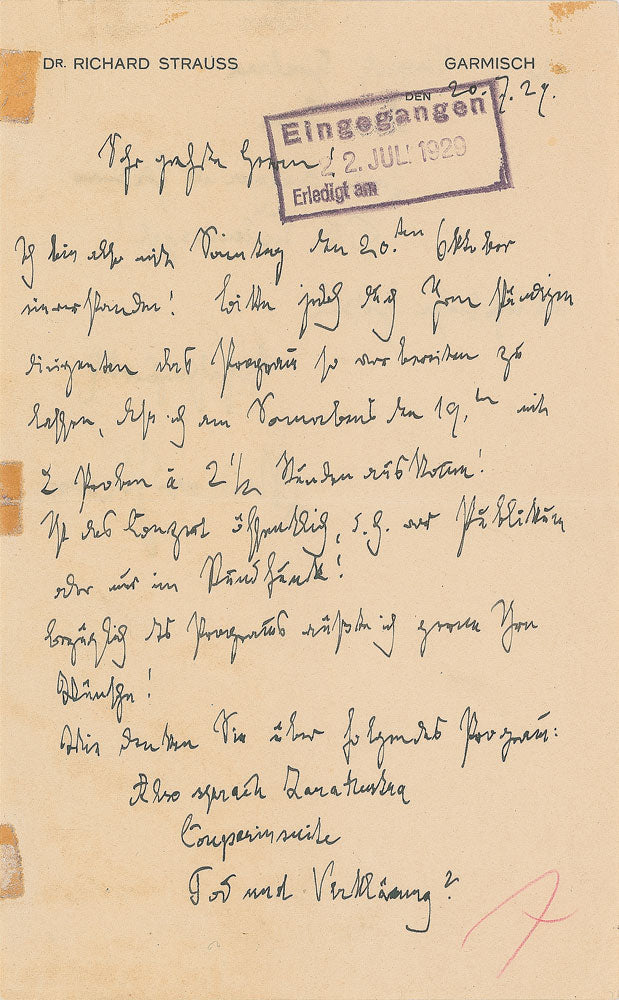 DR. RICHARD STRAUSS GARMISCH
DEN 20.7.29.
Eingegangen
22. JULI 1929
Erledigt am
Sehr geehrter Herr!
Ich bin also mit Sonntag den 20.ten Oktober
einverstanden! bitte jedoch durch Ihren ständigen
Dirigenten das Program so vorbereiten zu
lassen, dass ich am Sonnabend den 19.ten mit
2 Proben à 2 1/2 Stunden auskomme!
Ist das Conzert öffentlich, d.h. vor Publikum
oder nur im Rundfunk?
bezüglich des Programs wüsste ich gerne Ihre
Wünsche!
Wie denken Sie über folgendes Program:
Also sprach Zarathustra
Couperinsuite
Tod und Verklärung?